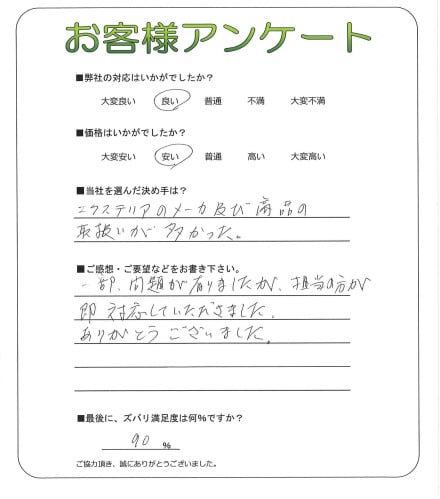 お客様アンケート
■弊社の対応はいかがでしたか？
大変良い 良い 普通 不満 大変不満
■価格はいかがでしたか？
大変安い 安い 普通 高い 大変高い
■当社を選んだ決め手は？
エクステリアのメーカ及び商品の
取扱いが多かった。
■ご感想・ご要望などをお書き下さい。
一部、問題が有りましたが、担当の方が
即対応していただきました。
ありがとうございました。
■最後に、ズバリ満足度は何％ですか？
90 %
ご協力頂き、誠にありがとうございました。